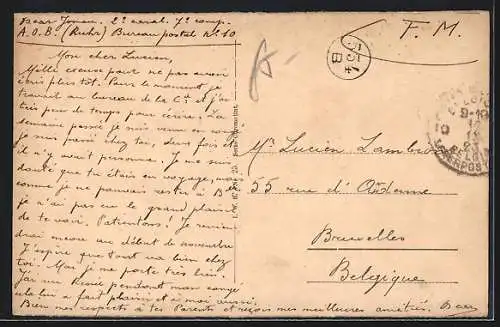 Bear Jonau. 2e carab. 7e comp.
A.O.B. (Ruhr) Bureau postal No 10
Mon cher Lucien,
Mille excuse pour ne pas avoir
écris plus tôt. Pour le moment je
travail au bureau de la Cie et j'ai
très peu de temps pour écrire. La
semaine passé je suis venu en congé
je suis passé chez toi, deux fois et
il n'y avait personne. Je me suis
douté que tu étais en voyage, mais
comme je ne pouvais rester à Bxl
je n'ai pas eu le grand plaisir
de te voir. Patientons! Je revien-
drai encore au début de novembre
J'espère que tout va bien chez
toi. Moi je me porte très bien.
J'ai vu René pendant mon congé
cela lui a fait plaisir et à moi aussi.
Bien mes respects à tes Parents et reçois mes meilleures amitiés. Bear
F. M.
Mr Lucien Lambion
55 rue d'Ardenne
Bruxelles
Belgique